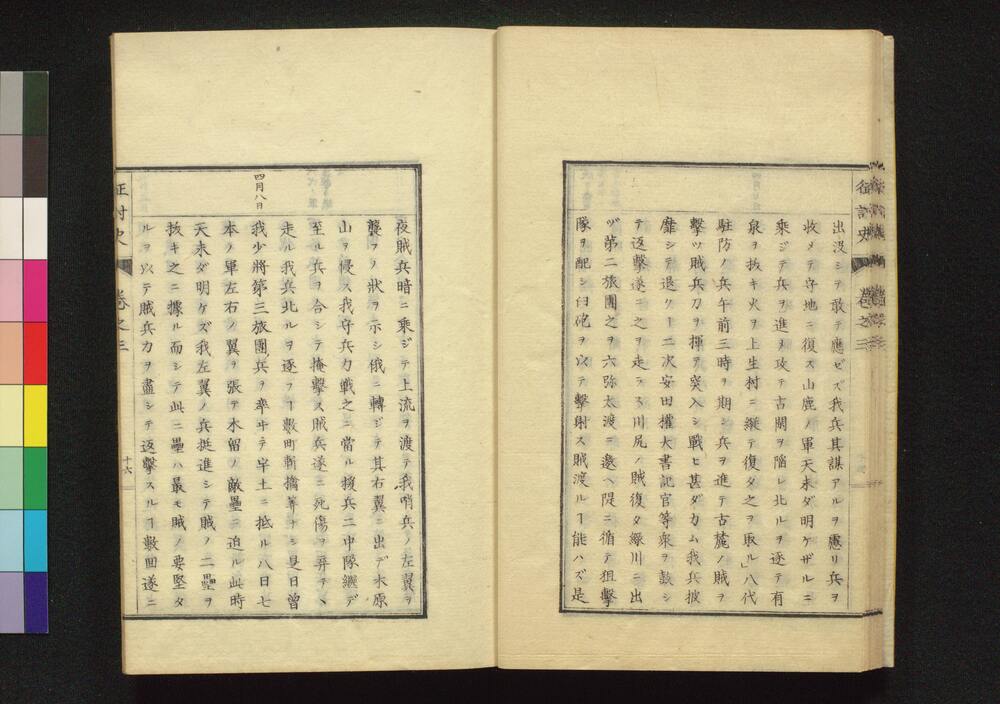 征討史 卷之三
出没シテ敢テ應ゼズ我兵其謀アルヲ慮リ兵ヲ
收メテ守地ニ復ス山鹿ノ軍天未ダ明ケザルニ
乘ジテ兵ヲ進メ攻テ古閑ヲ陥レ北ルヲ逐テ有
泉ヲ抜キ火ヲ上生村ニ縱テ復タ之ヲ取ル」八代
駐防ノ兵午前三時ヲ期シ兵ヲ進テ古麓ノ賊ヲ
擊ツ賊兵刀ヲ揮ヲ突入シ戰ヒ甚ダカム我兵披
靡シテ退クヿ二次安田權大書記官等衆ヲ鼓シ
テ返擊遂ニ之ヲ走ラス川尻ノ賊復タ緑川ニ出
ヅ第二旅團之ヲ六弥太渡ニ邀ヘ隄ニ循テ狙擊
隊ヲ配シ臼砲ヲ以テ擊射ス賊渡ルヿ能ハズ是
四月八日
夜賊兵暗ニ乘ジテ上流ヲ渡テ我哨兵ノ左翼ヲ
襲フノ狀ヲ示シ俄ニ轉ジテ其右翼ニ出デ木原
山ヲ侵ス我守兵力戰之ニ當ル援兵二中隊繼デ
至ル兵ヲ合シテ掩擊ス賊兵遂ニ死傷ヲ弃テヽ
走ル我兵北ルヲ逐フヿ數町斬擒等ナシ是日曽
我少將第三旅團兵ヲ率ヰテ宇土ニ抵ル八日七
本ノ軍左右ノ翼ヲ張テ木留ノ敵壘ニ迫ル此時
天未ダ明ケズ我左翼ノ兵挺進シテ賊ノ二壘ヲ
抜キ之ニ據ル而シテ此二壘ハ最モ賊ノ要堅タ
ルヲ以テ賊兵力ヲ盡シテ返擊スルヿ數回遂ニ
征討史 卷之三 十六